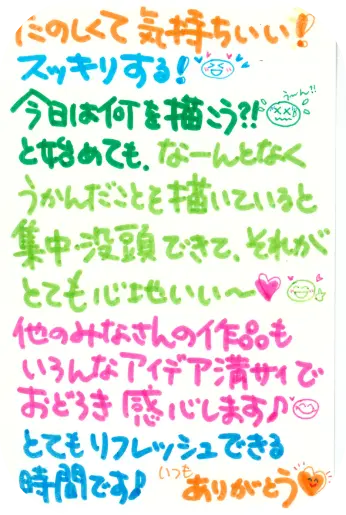 たのしくて気持ちいい!
スッキリする!
今日は何を描こう?!
うーん?!
と始めても、なーんとなく
うかんだことを描いていると
集中・没頭できて、それが
とても心地いい〜
他のみなさんの作品も
いろんなアイデア満サイで
おどろき感心します♪
とてもリフレッシュできる
時間です♪ いつもありがとう